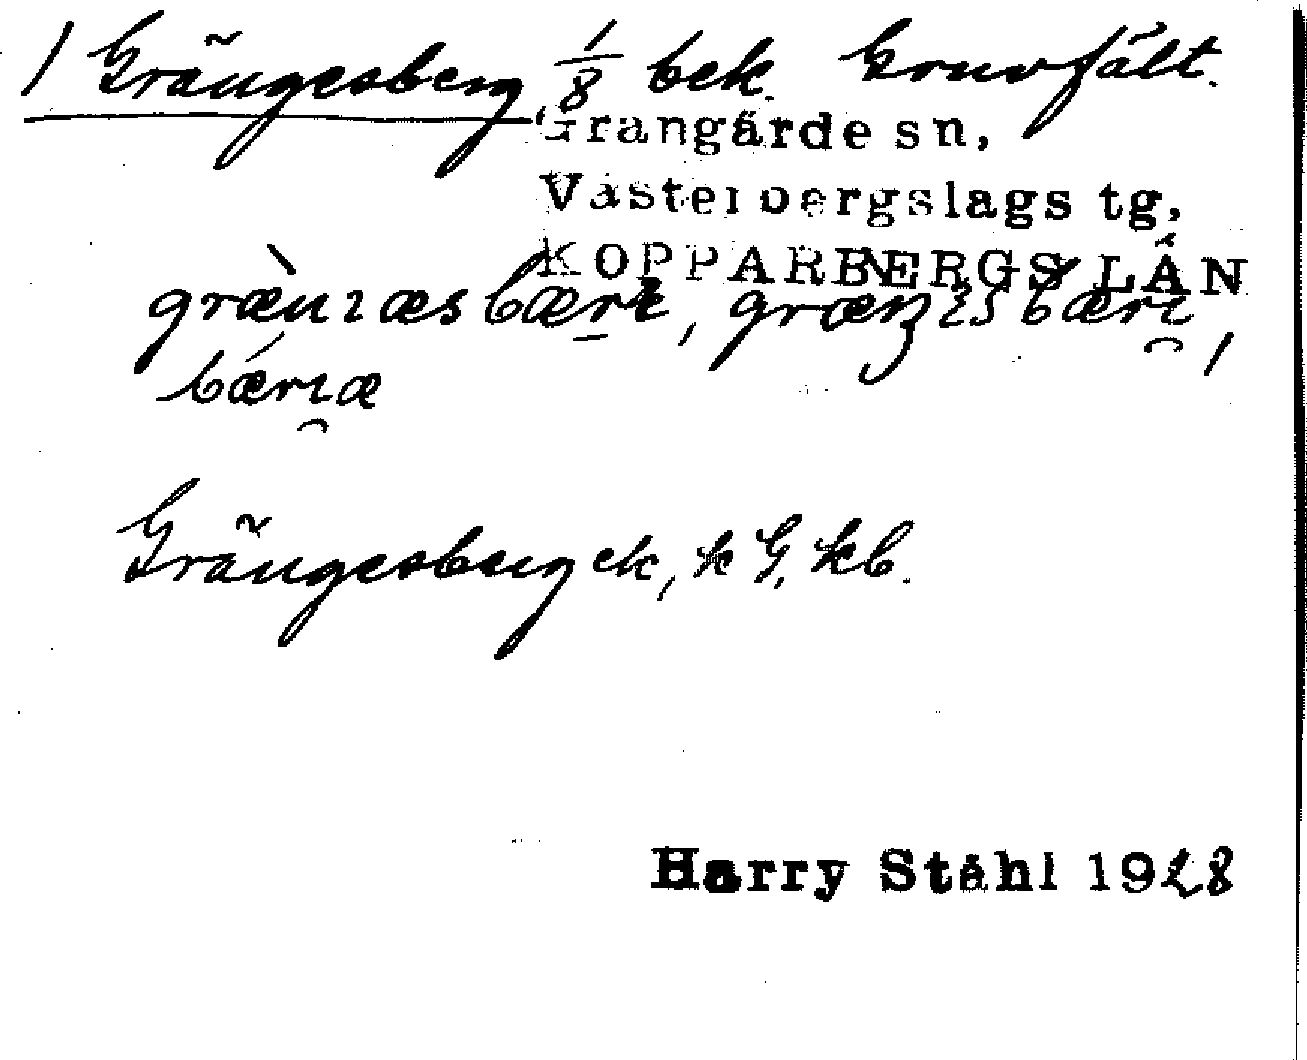 1 Grängesberg 1/8 bek. Gruvfält.
Grangärde sn,
Västerbergslags tg,
KOPPARBERGS LÄN
bærıæ
Grängesberg ek, k G, kb.
Harry Ståhl 1928